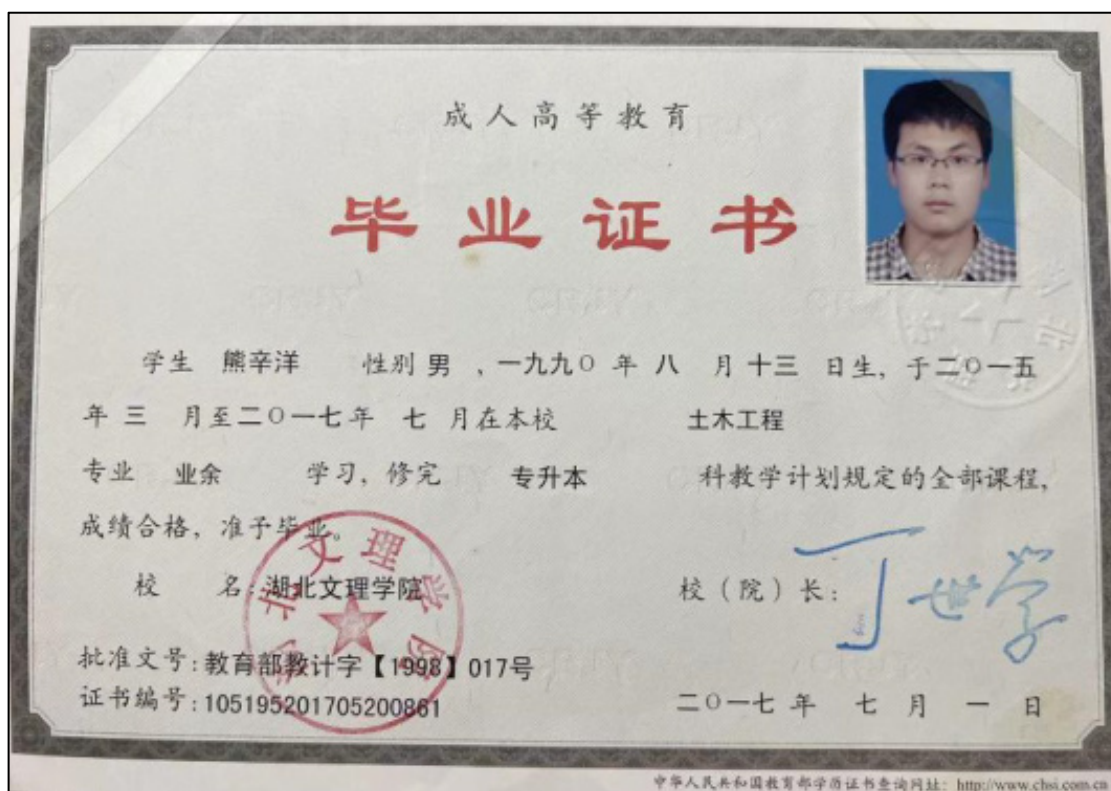 成人高等教育
毕业证书
学生 熊辛洋 性别 男 ,一九九〇 年 八 月 十三 日生, 于二〇一五
年 三 月至二〇一七年 七 月在本校 土木工程
专业 业余 学习, 修完 专升本 科教学计划规定的全部课程,
成绩合格, 准予毕业。
校 名:湖北文理学院
校（院）长: 丁世学
湖北文理学院
批准文号:教育部教计字【1998】017号
证书编号:105195201705200861
二〇一七 年 七 月 一 日
中华人民共和国教育部学历证书查询网址: http://www.chsi.com.cn